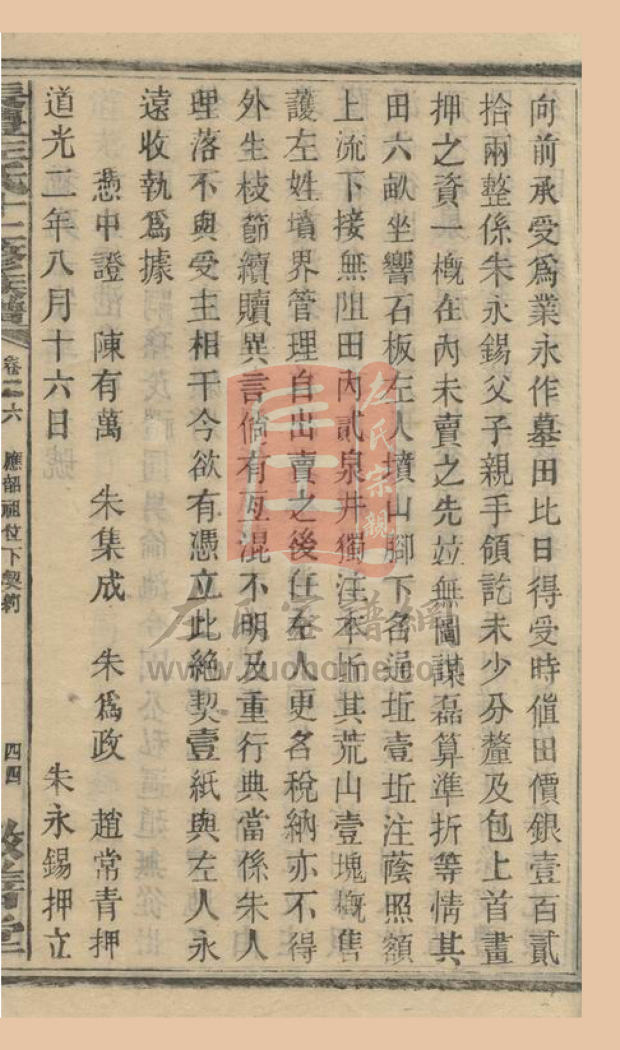 向前承受爲業永作墓田比日得受時値田價銀壹百貳
拾兩整係朱永錫父子親手領訖未少分釐及包上首畫
押之資一概在內未賣之先竝無圖謀磊算準折等情其
田六畝坐響石板左人墳山腳下名通坵壹坵注蔭照額
上流下接無阻田內貳泉井獨注本坵其荒山壹塊槪售
護左姓墳界管理自出賣之後任左人更名稅納亦不得
外生枝節續贖異言倘有互混不明及重行典當係朱人
理落不與受主相干今欲有憑立此絕契壹紙與左人永
遠收執爲據
憑中證 陳有萬 朱集成 朱爲政 趙常青押
道光二年八月十六日 朱永錫押立
卷二六 應韶祖位下契約 四四
左氏宗親
左氏家譜網
www.zuohome.com